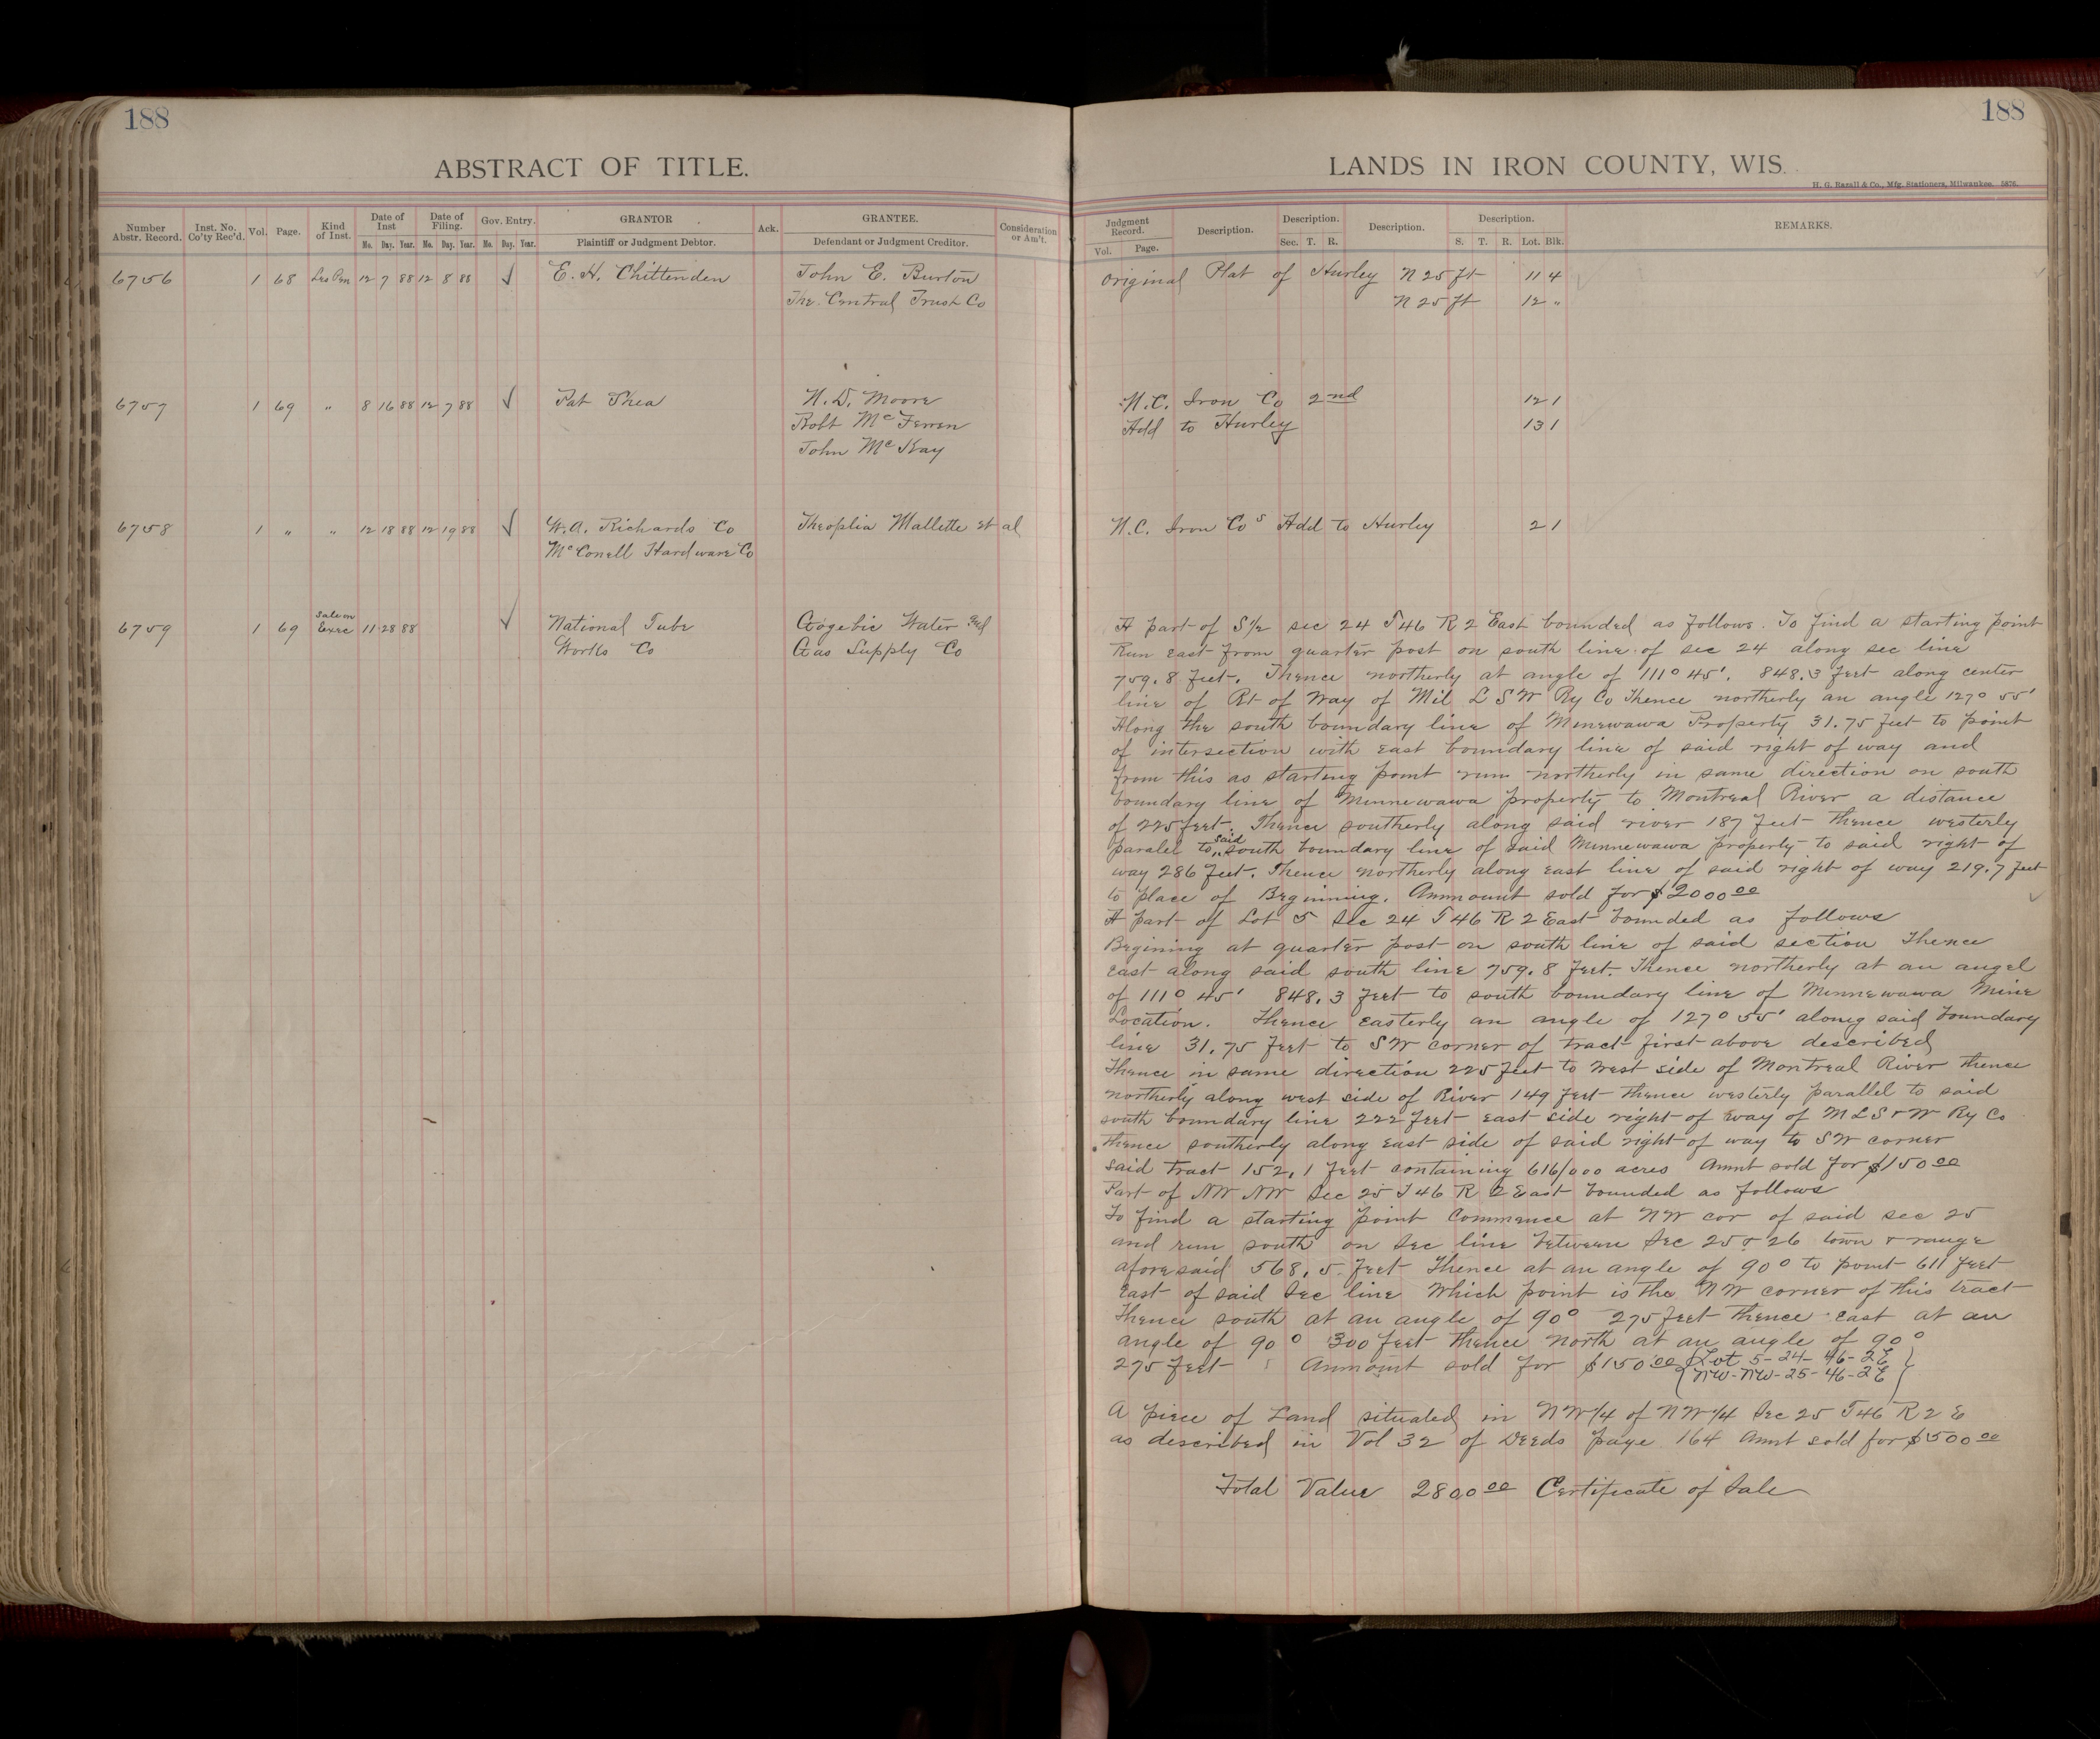 188
188
ABSTRACT OF TITLE.
LANDS IN IRON COUNTY, WIS.
H. G. Razall & Co., Mfg. Stationers, Milwaukee. 5876.
Number Abstr. Record. Inst. No. Co'ty Rec'd. Vol. Page. Kind of Inst. Date of Inst Mo. Day. Year. Date of Filing. Mo. Day. Year. Gov. Entry. Mo. Day. Year. GRANTOR Plaintiff or Judgment Debtor. Ack. GRANTEE. Defendant or Judgment Creditor. Consideration or Am't.
Judgment Record. Vol. Page. Description. Description. Sec. T. R. Description. Description. S. T. R. Lot. Blk. REMARKS.
6756 1 68 Les Pen 12 7 88 12 8 88 ✓ E. H. Chittenden John E. Burton
The Central Trust Co
Original Plat of Hurley N 25 ft 11 4
N 25 ft 12 "
6757 1 69 " 8 16 88 12 7 88 ✓ Pat Shea H. D. Moore
Robt McFerren
John McKay
N.C. Iron Co 2nd 12 1
Add to Hurley 13 1
6758 1 " " 12 18 88 12 19 88 ✓ W.A. Richards Co Theoplia Mallette et al
McConell Hardware Co
N.C. Iron Cos Add to Hurley 2 1
6759 1 69 Sale on Exec 11 28 88 ✓ National Tube Gogebic Water and
Works Co Gas Supply Co
A part of S½ sec 24 T46 R 2 East bounded as follows. To find a starting point
Run east from quarter post on south line of sec 24 along sec line
759.8 feet. Thence northerly at angle of 111° 45'. 848.3 feet along center
line of Rt of Way of Mil L S W Ry Co Thence northerly an angle 127° 55'
Along the south boundary line of Minewawa Property 31.75 feet to point
of intersection with east boundary line of said right of way and
from this as starting point run northerly in same direction on south
boundary line of Minnewawa property to Montreal River a distance
of 225 feet. Thence southerly along said river 187 feet thence westerly
paralel to said south boundary line of said Minnewawa property to said right of
way 286 feet. Thence northerly along east line of said right of way 219.7 feet
to place of Beginning. Ammount sold for $2000 00
A part of Lot 5 Sec 24 T46 R 2 East bounded as follows
Begining at quarter post on south line of said section Thence
east along said south line 759.8 feet. Thence northerly at an angel
of 111° 45' 848.3 feet to south boundary line of Minnewawa Mine
Location. Thence easterly an angle of 127° 55' along said boundary
line 31.75 feet to SW corner of tract first above described
Thence in same direction 225 feet to west side of Montreal River thence
northerly along west side of River 149 feet thence westerly parallel to said
south boundary line 222 feet east side right of way of M L S & W Ry Co
thence southerly along east side of said right of way to SW corner
said tract 152.1 feet containing 616/000 acres Amnt sold for $150 00
Part of NW NW Sec 25 T46 R 2 East bounded as follows
To find a starting point Commence at NW cor of said sec 25
and run south on Sec line between Sec 25 & 26 town & range
aforesaid 568.5 feet Thence at an angle of 90° to point 611 feet
east of said Sec line Which point is the NW corner of this tract
Thence south at an angle of 90° 275 feet thence east at an
angle of 90° 300 feet thence north at an angle of 90°
275 feet Ammount sold for $150 00 (Lot 5-24-46-2E)
(NW-NW-25-46-2E)
A piece of Land situated in NW¼ of NW¼ Sec 25 T46 R 2 E
as described in Vol 32 of Deeds page 164 Amnt sold for $500 00
Total Value 2800 00 Certificate of Sale